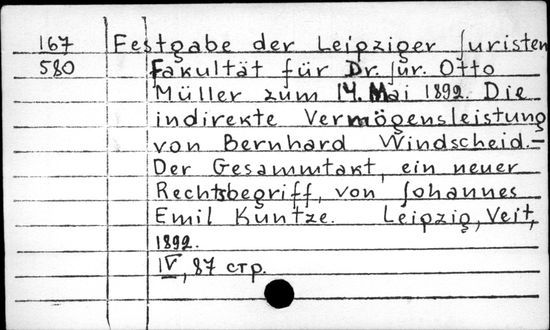 167 Festgabe der Leipziger Juristen
580 Fakultät für Dr. jur. Otto
Müller zum 14. Mai 1892. Die
indirekte Vermögensleistung
von Bernhard Windscheid.–
Der Gesammtakt, ein neuer
Rechtsbegriff, von Johannes
Emil Kuntze. Leipzig, Veit,
1892.
IV, 87 стр.